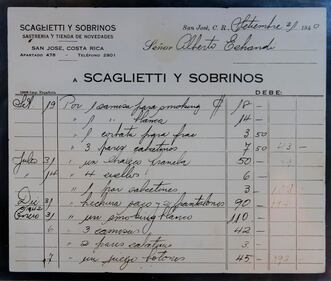 SCAGLIETTI Y SOBRINOS
SASTRERIA Y TIENDA DE NOVEDADES
SAN JOSE, COSTA RICA
APARTADO 478 - TELÉFONO 2801
San José, C. R. Setiembre 21 1940
Señor Alberto Echandi
A SCAGLIETTI Y SOBRINOS
DEBE:
Set 19 Por 1 camisa para smoking ₡ 18 —
" 1 " blanca 14 —
" 1 corbata para frac 3 50
" 3 pares calcetines 7 50 43 —
Julio 31 " un chaleco franela 50 —
" 14 " 4 cuellos 6 —
" 1 par calcetines 3 —
Dic " hechura saco y pantalones 90 —
Enero " un smoking blanco 110 —
6 " 3 camisas 42 —
" 2 pares calcetines 3 —
7 " un juego botones 45 193 —